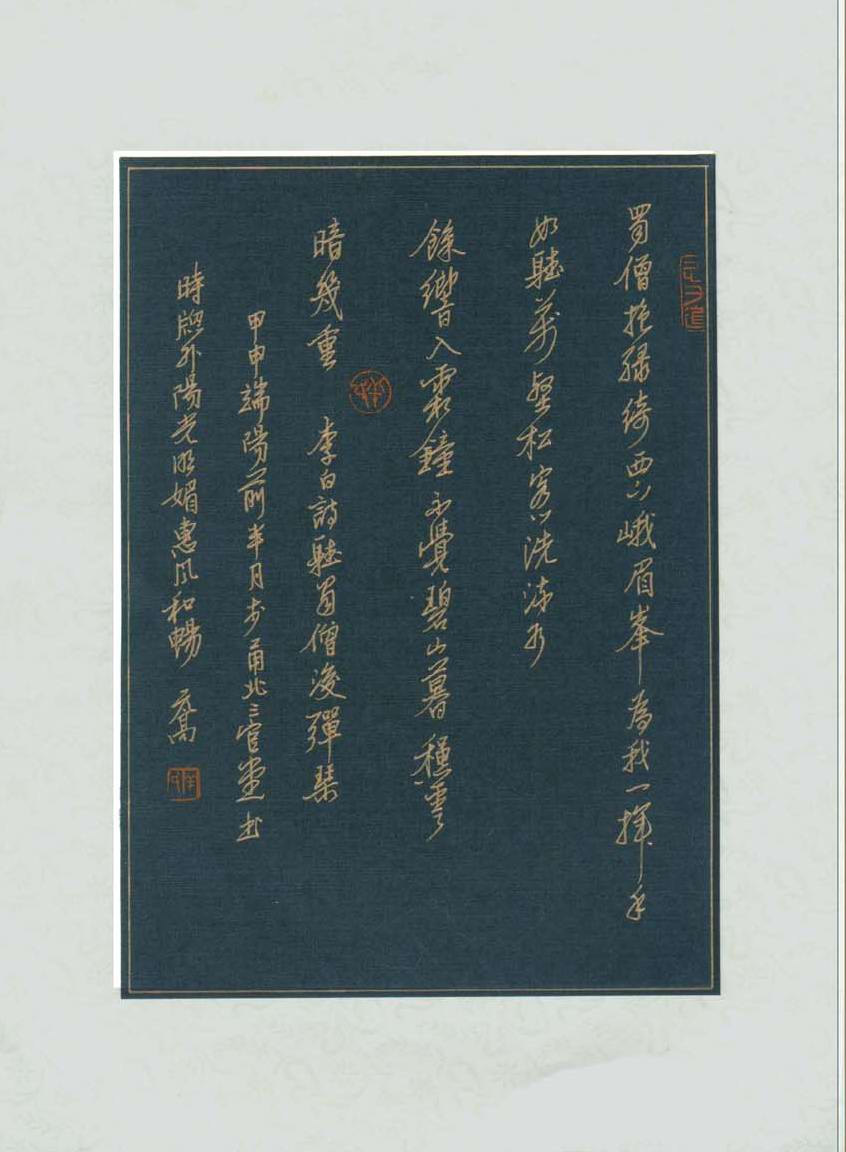 蜀僧抱綠綺西下峨眉峯為我一揮手
如聽萬壑松客心洗流水
餘響入霜鐘不覺碧山暮穐雲
暗幾重 李白詩聽蜀僧濬彈琴
甲申端陽前半月於甬北三官堂書
時牕外陽光明媚惠風和暢